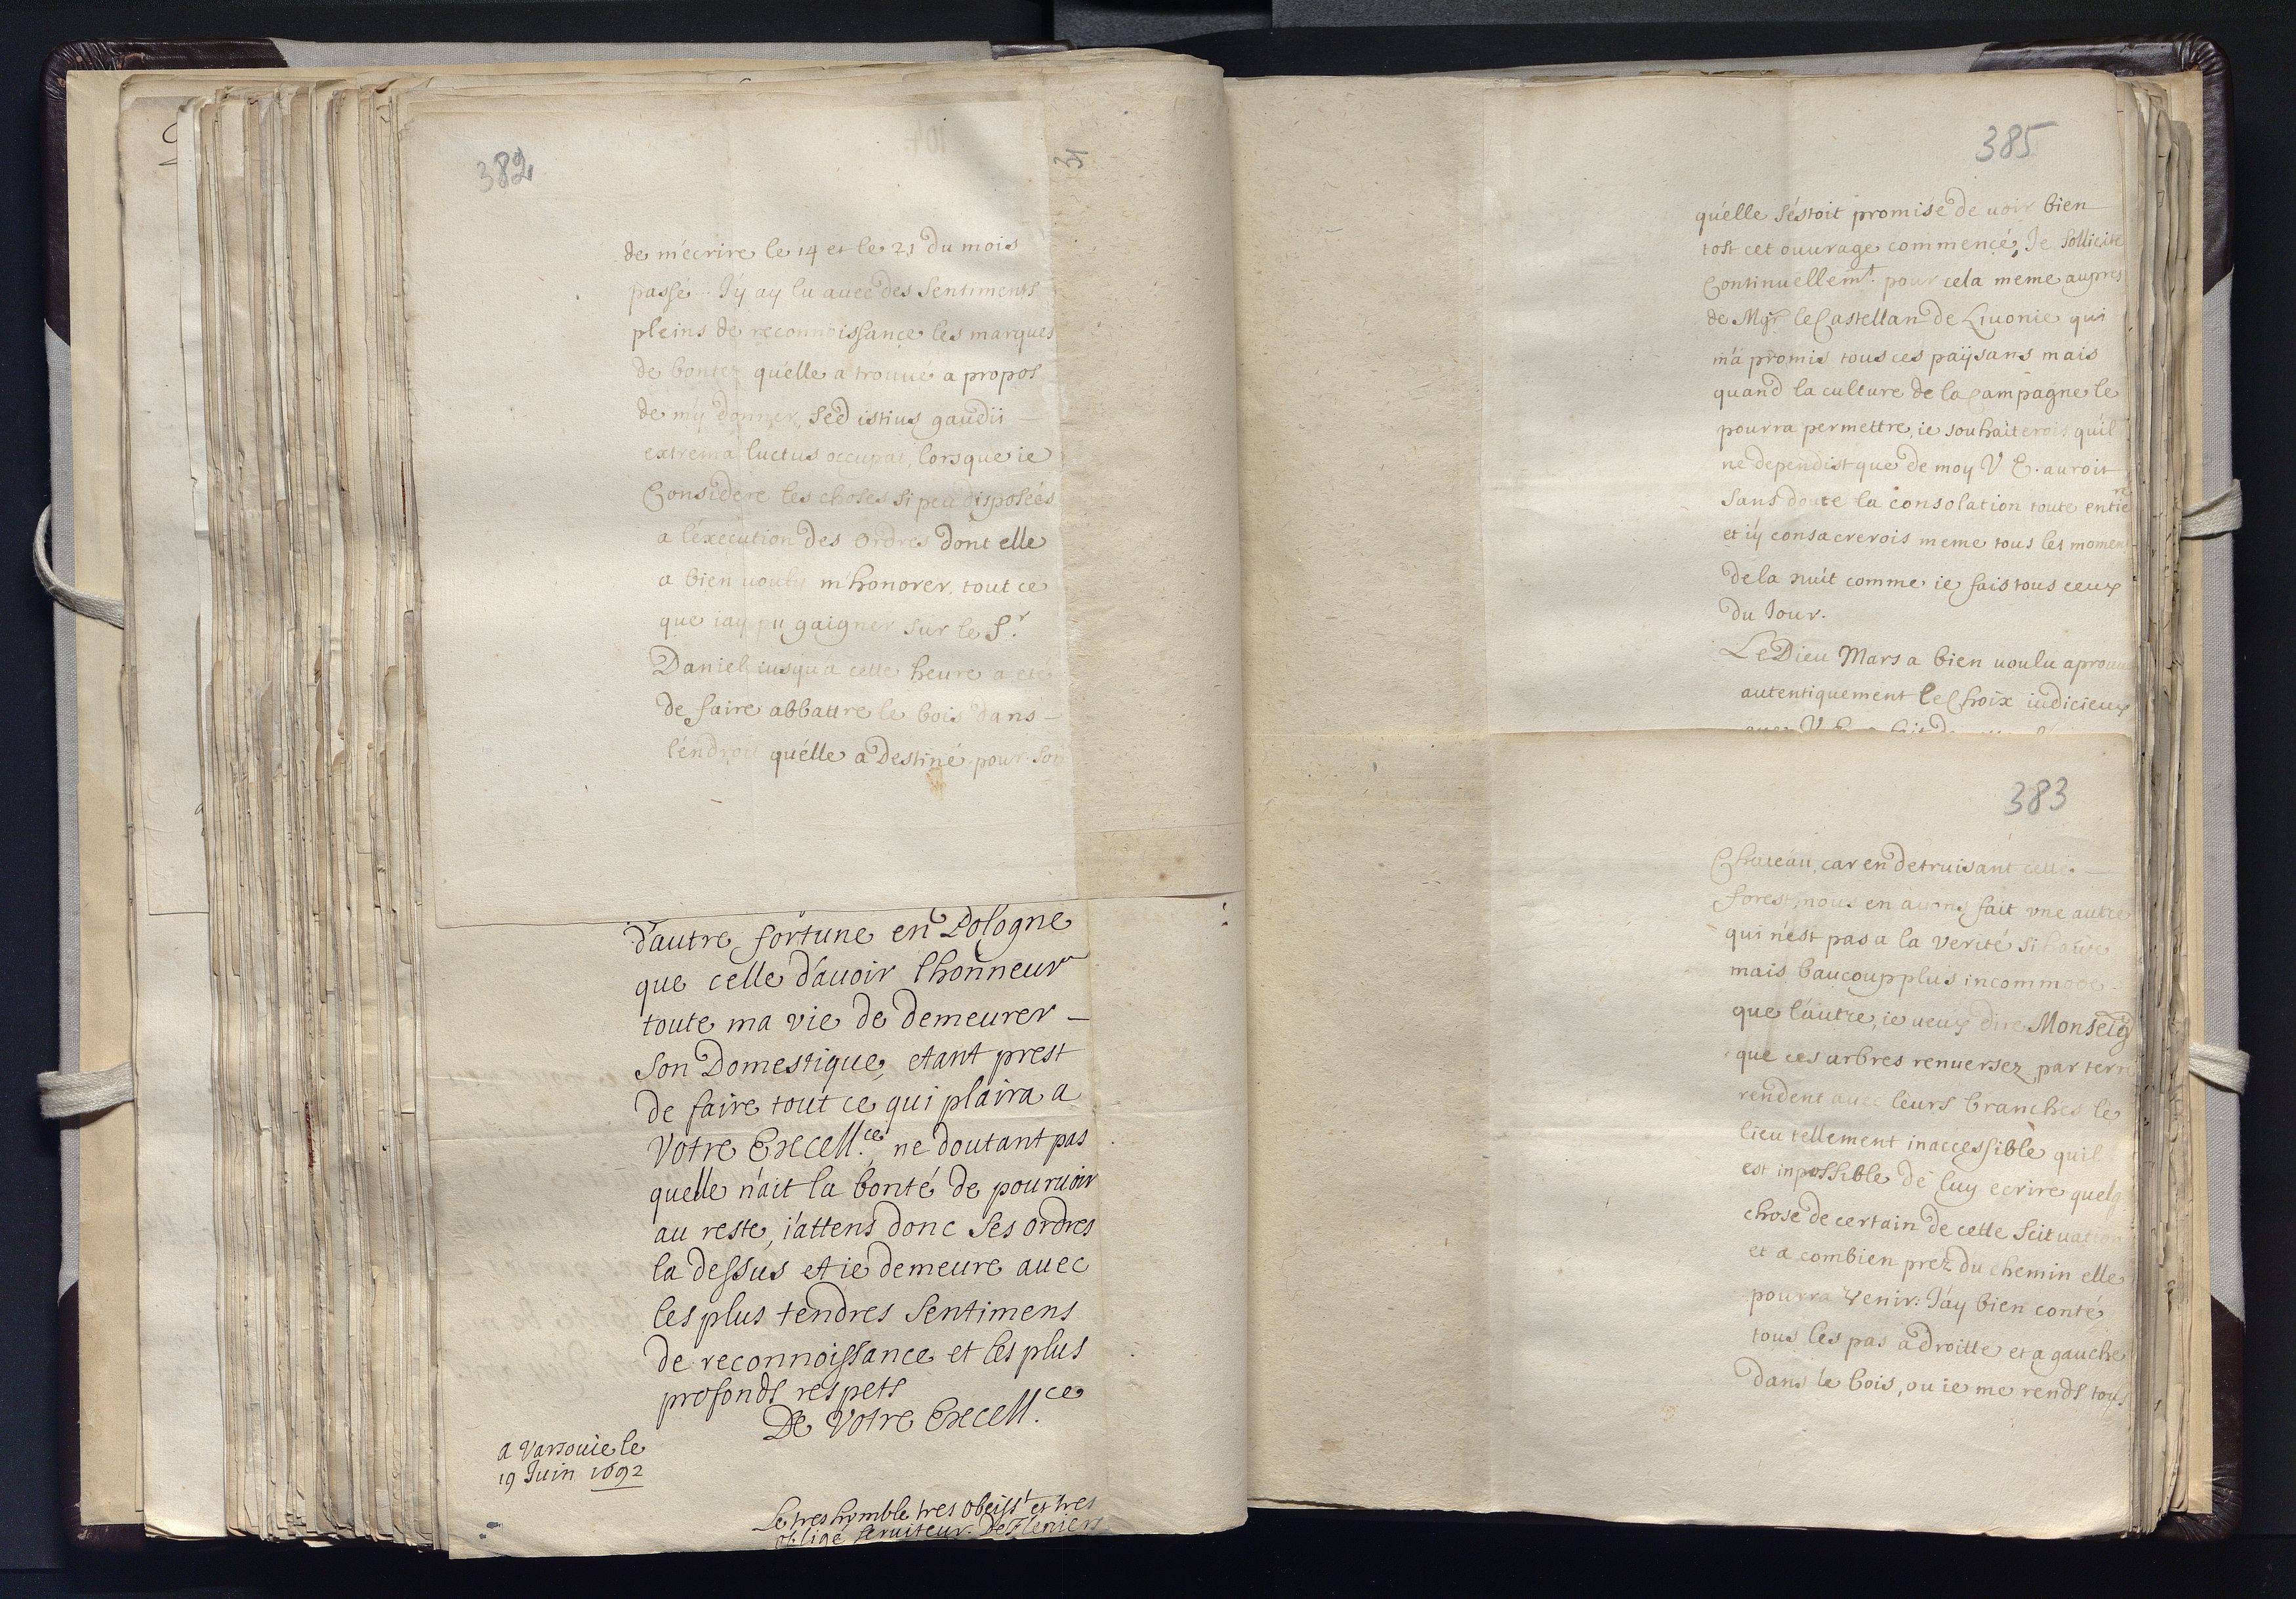 382
31
de m'écrire le 14 et le 21 du mois
passé. J'y ay lu auec des sentiments
pleins de reconnoissance les marques
de bontez qu'elle a trouué a propos
de m'y donner, sed istius gaudii
extrema luctus occupat, lorsque ie
Considere les choses si peu disposées
a l'éxecution des Ordres dont elle
a bien voulu m'honorer, tout ce
que iay pu gaigner sur le S.r
Daniel iusqu'a cette heure a eté
de faire abbattre le bois dans
l'endroit qu'elle a Destiné pour Son
d'autre fortune en Pologne
que celle d'auoir lhonneur
toute ma vie de demeurer
Son Domestique, etant prest
de faire tout ce qui plaira a
Votre Excell.ce ne doutant pas
quelle n'ait la bonté de pouruoir
au reste, i'attens donc Ses ordres
la dessus et ie demeure auec
les plus tendres Sentimens
de reconnoissance et les plus
profonds respets
De Votre Excell.ce
a Varsouie le
19 Juin 1692
Le tres humble tres obeisst et tres
obligé seruiteur.
385
qu'elle s'éstoit promise de uoir bien
tost cet ouurage commencé, Je Sollicite
Continuellemt. pour cela meme aupres
de Mgr le Castellan de Liuonie qui
m'a promis tous ces païsans mais
quand la culture de la Campagne le
pourra permettre, ie souhaiterois qu'il
ne dependist que de moy V E. auroit
sans doute la consolation toute entie
et i'y consacrerois meme tous les momens
de la nuit comme ie fais tous ceux
du Jour.
Le Dieu Mars a bien uoulu aprouue
autentiquement le Choix iudicieux
383
Chateau, car en detruisant cette
forest, nous en auons fait vne autre
qui n'est pas a la verité si
mais baucoup plus incommode
que l'autre, ie ueux dire Monseig
que ces arbres renuersez par terre
rendent auec leurs branches le
lieu tellement inaccessible quil
est inpossible de luy ecrire quelq
chose de certain de cette Scituation
et a combien prez du chemin elle
pourra venir. J'ay bien conté
tous les pas a droitte et a gauche
dans le bois, ou ie me rends tous